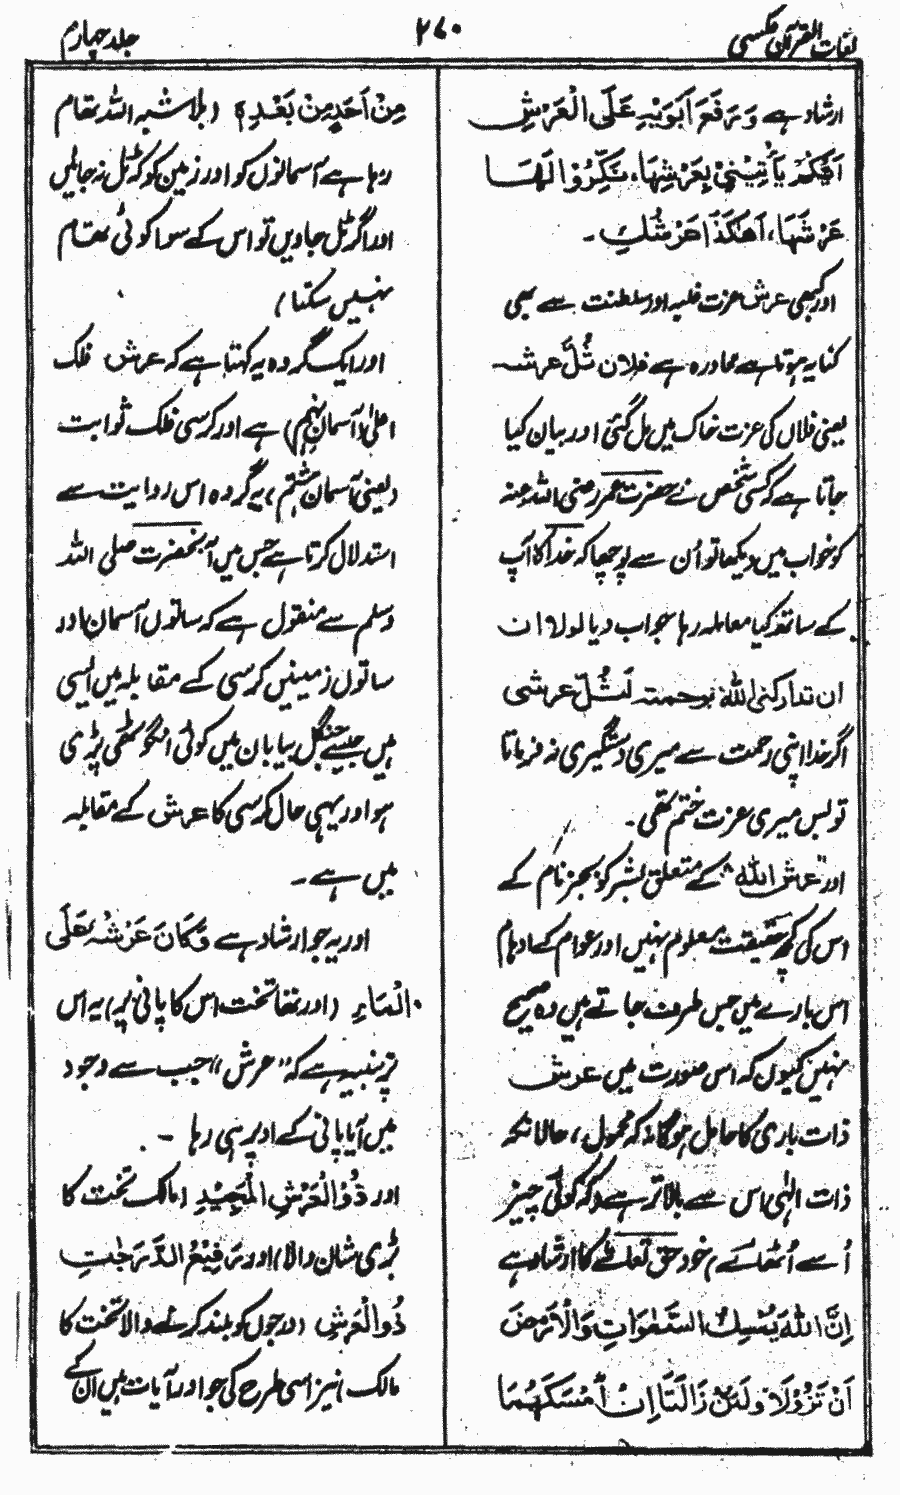 لغات القرآن عکسی
۲۷۰
جلد چہارم
ارشاد ہے وَرَفَعَ اَبَوَیْہِ عَلَی الْعَرْشِ
اَیُّکُمْ یَأْتِیْنِیْ بِعَرْشِہَا، نَکِّرُوْا لَہَا
عَرْشَہَا، اَہٰکَذَا عَرْشُکِ۔
اور کبھی عرش عزت غلبہ اور سلطنت سے بھی
کنایہ ہوتا ہے محاورہ ہے فلان ثُلَّ عرشہ
یعنی فلاں کی عزت خاک میں مل گئی اور بیان کیا
جاتا ہے کہ کسی شخص نے حضرت عمر رضی اللہ عنہ
کو خواب میں دیکھا تو اُن سے پوچھا کہ خدا کا آپ
کے ساتھ کیا معاملہ رہا جواب دیا لولا ان
ان تدارکنی اللہ برحمتہ لَثُلَّ عرشی
اگر خدا اپنی رحمت سے میری دستگیری نہ فرماتا
تو بس میری عزت ختم تھی۔
اور "عرش اللہ" کے متعلق بشر کو بجز نام کے
اس کی کچھ حقیقت معلوم نہیں اور عوام کے اوہام
اس بارے میں جس طرف جاتے ہیں وہ صحیح
نہیں کیوں کہ اس صورت میں عرش
ذات باری کا حامل ہوگا نہ کہ محمول، حالانکہ
ذات الٰہی اس سے بالاتر ہے کہ کوئی چیز
اُسے اُٹھا سکے، خود حق تعالٰے کا ارشاد ہے
اِنَّ اللّٰہَ یُمْسِکُ السَّمٰوَاتِ وَالْاَرْضَ
اَنْ تَزُوْلَا وَلَئِنْ زَالَتَا اِنْ اَمْسَکَہُمَا
مِنْ اَحَدٍ مِّنْ بَعْدِہٖ (بلا شبہ اللہ تھام
رہا ہے آسمانوں کو اور زمین کو کہ ٹل نہ جائیں
اور اگر ٹل جاویں تو اس کے سوا کوئی تھام
نہیں سکتا)
اور ایک گروہ یہ کہتا ہے کہ عرش فلک
اعلیٰ (آسمان نہم) ہے اور کرسی فلک ثوابت
(یعنی آسمان ہشتم) یہ گروہ اس روایت سے
استدلال کرتا ہے جس میں آنحضرت صلی اللہ
وسلم سے منقول ہے کہ ساتوں آسمان اور
ساتوں زمینیں کرسی کے مقابلہ میں ایسی
ہیں جیسے جنگل بیابان میں کوئی انگوٹھی پڑی
ہو اور یہی حال کرسی کا عرش کے مقابلہ
میں ہے۔
اور یہ جو ارشاد ہے وَّکَانَ عَرْشُہٗ عَلَی
الْمَاءِ (اور تھا تخت اس کا پانی پر) یہ اس
پر تنبیہ ہے کہ "عرش" جب سے وجود
میں آیا پانی کے اوپر ہی رہا۔
اور ذُوالْعَرْشِ الْمَجِیْدِ (مالک تخت کا
بڑی شان والا) اور رَفِیْعُ الدَّرَجٰتِ
ذُوالْعَرْشِ (درجوں کو بلند کرنے والا تخت کا
مالک) نیز اسی طرح کی جو اور آیات ہیں ان کے